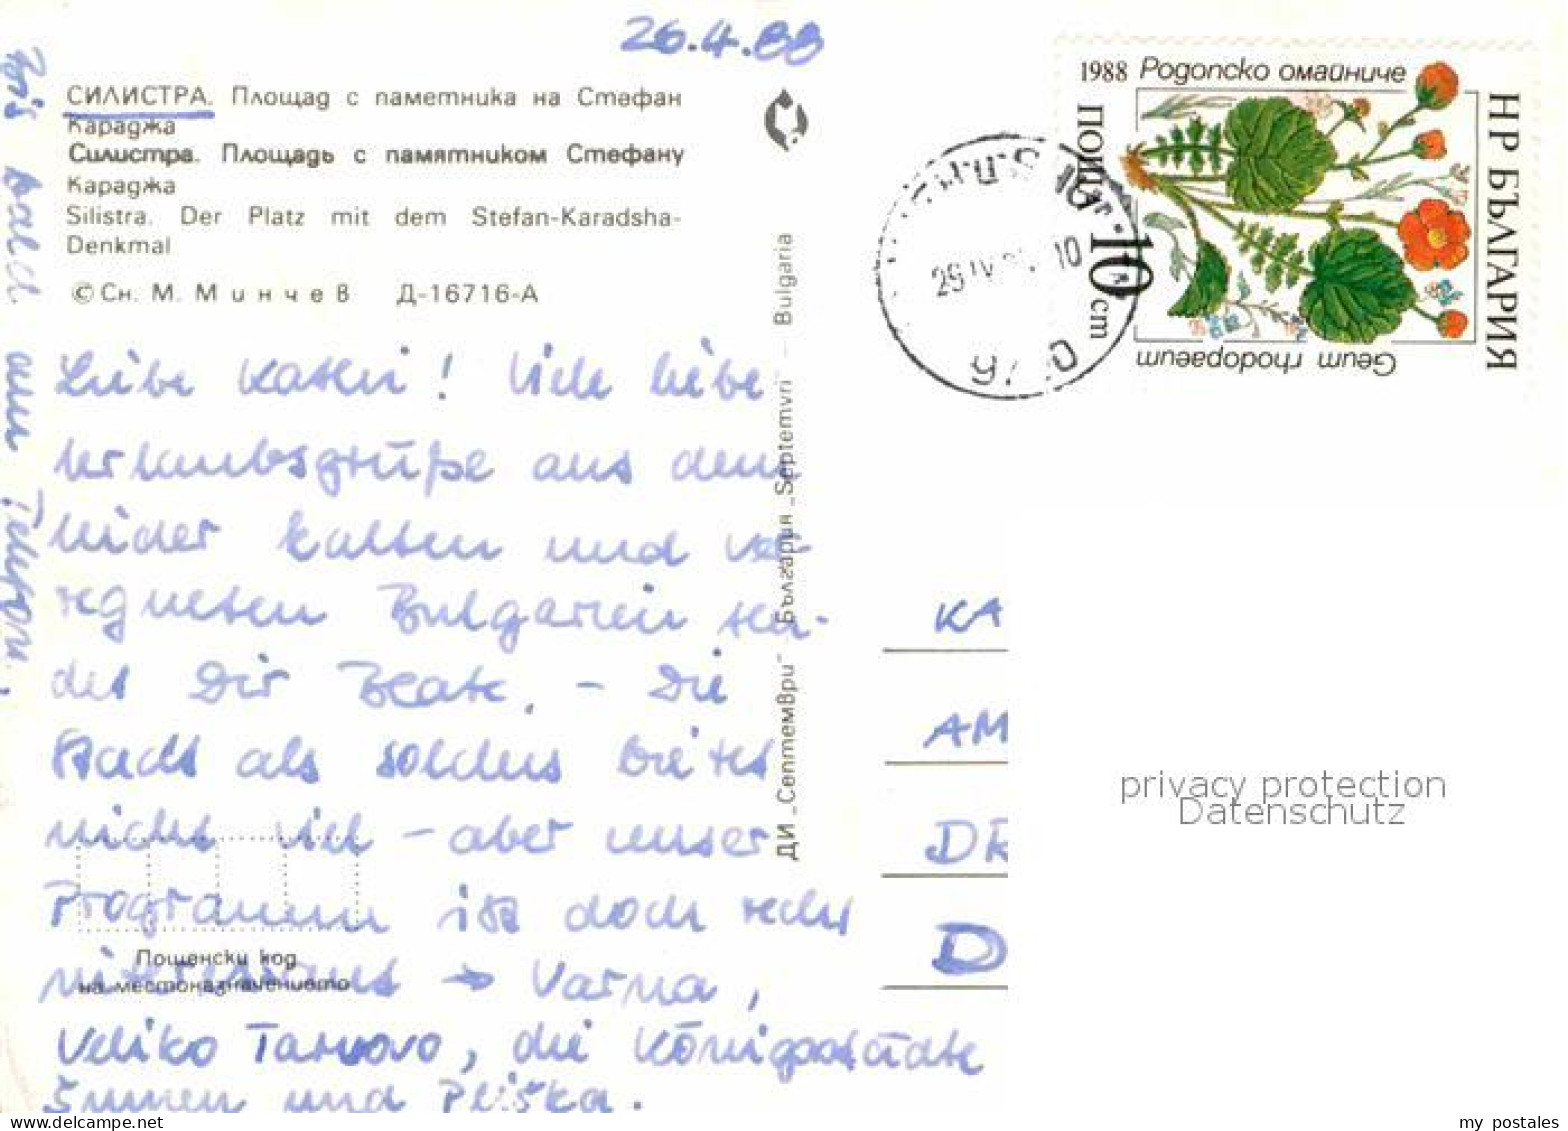 26.4.88
СИЛИСТРА. Площад с паметника на Стефан
Караджа
Силистра. Площадь с памятником Стефану
Караджа
Silistra. Der Platz mit dem Stefan-Karadsha-
Denkmal
© Сн. М. Минчев Д-16716-А
Liebe Kathi! Viele liebe
Urlaubsgrüße aus dem
leider kalten und ver-
regneten Bulgarien sen-
det Dir Beate. – Die
Stadt als solches bietet
nicht viel – aber unser
Programm ist doch recht
interessant → Varna,
Veliko Tarnovo, die Königsstädte
Šumen und Pliška.
Bis bald am Telefon.
Пощенски код
на местоназначението
ДИ „Септември" България „Septemvri" – Bulgaria
1988 Родопско омайниче
ПОЩА
10 ст
НР БЪЛГАРИЯ
Geum rhodopaeum
29 IV 10
KA
AM
D
privacy protection
Datenschutz
my postales